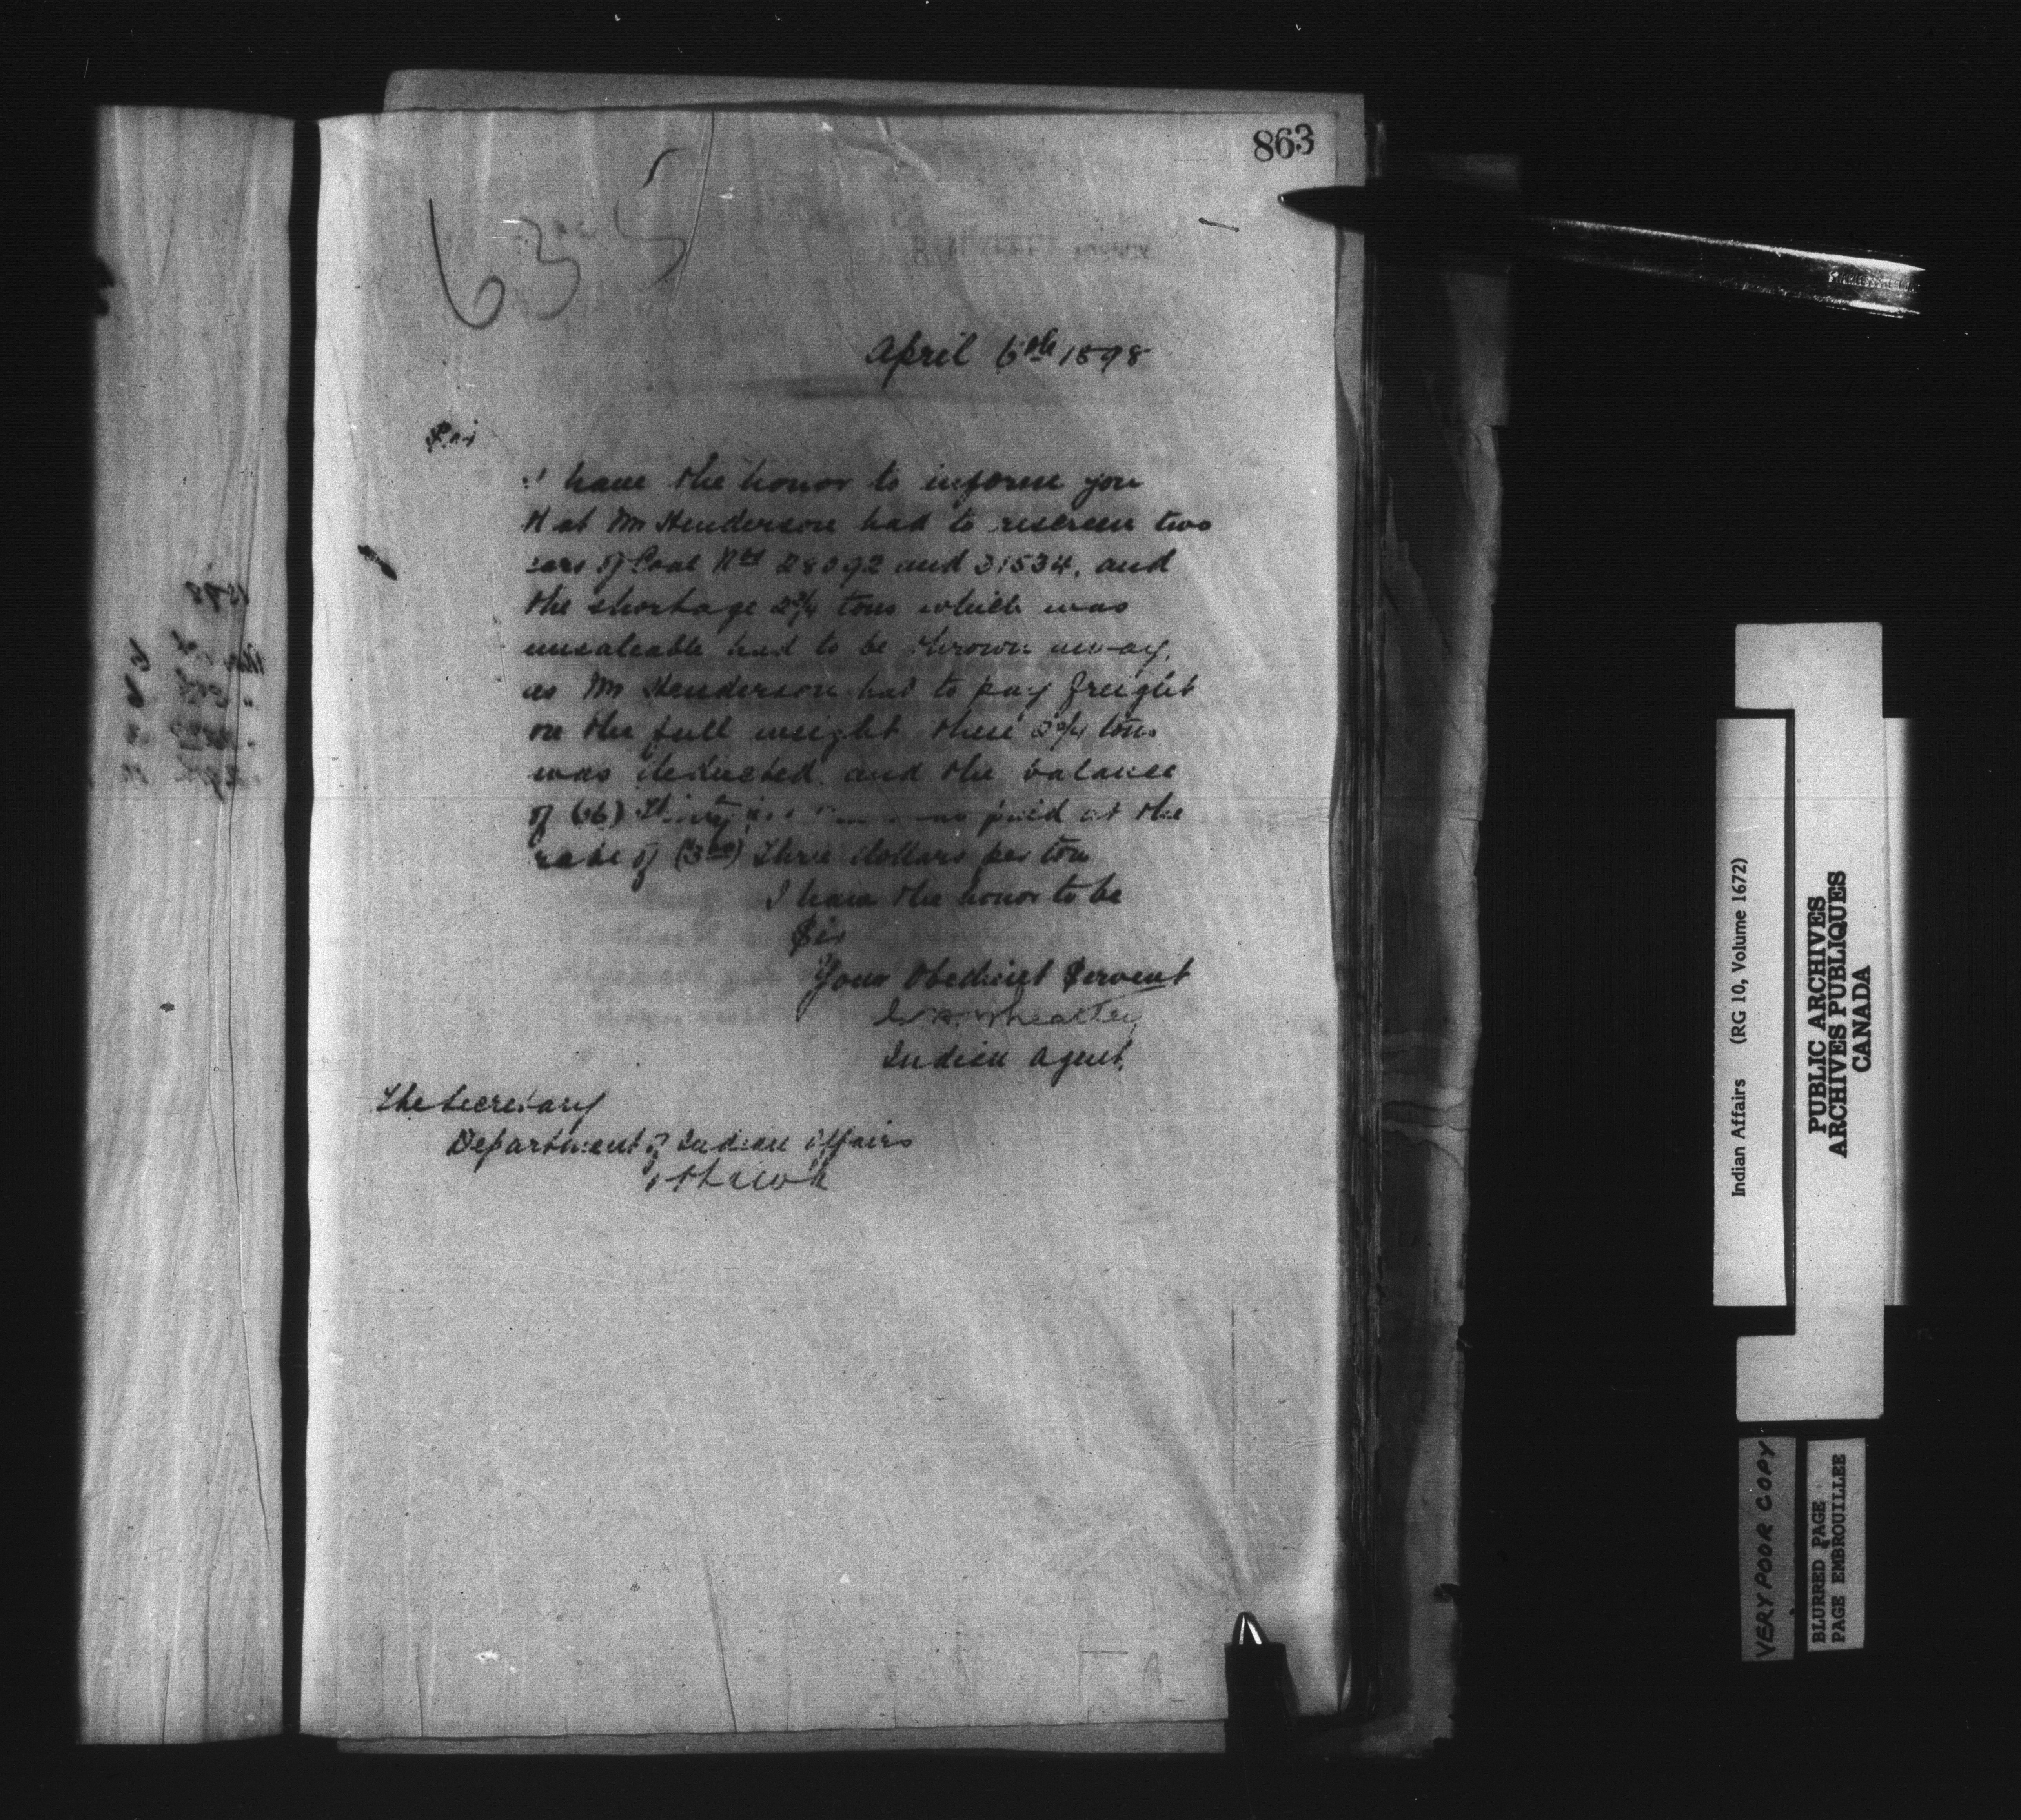 863
635
April 6th 1898
Sir
I have the honor to inform you
that Mr Henderson had to rescreen two
cars of Coal Nos 28092 and 31534, and
the shortage 2 3/4 tons which was
unsaleable had to be thrown away,
as Mr Henderson had to pay freight
on the full weight these 2 3/4 tons
was deducted and the balance
of (36) Thirty six was paid at the
rate of (3.00) Three dollars per ton
I have the honor to be
Sir
Your Obedient Servent
Wheatley
Indian Agent.
The Secretary
Department of Indian Affairs
Ottawa
Indian Affairs (RG 10, Volume 1672)
PUBLIC ARCHIVES
ARCHIVES PUBLIQUES
CANADA
VERY POOR COPY
BLURRED PAGE
PAGE EMBROUILLEE